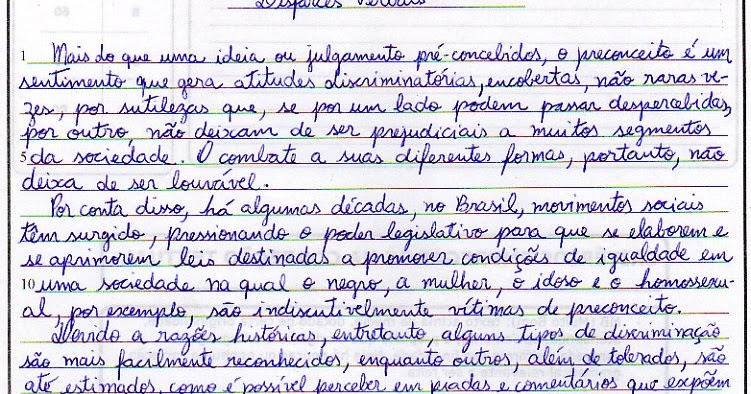 Disfarces Verbais
1 Mais do que uma ideia ou julgamento pré-concebidos, o preconceito é um
sentimento que gera atitudes discriminatórias, encobertas, não raras ve-
zes, por sutilezas que, se por um lado podem passar despercebidas,
por outro, não deixam de ser prejudiciais a muitos segmentos
5 da sociedade. O combate a suas diferentes formas, portanto, não
deixa de ser louvável.
Por conta disso, há algumas décadas, no Brasil, movimentos sociais
têm surgido, pressionando o poder legislativo para que se elaborem e
se aprimorem leis destinadas a promover condições de igualdade em
10 uma sociedade na qual o negro, a mulher, o idoso e o homossexu-
al, por exemplo, são indiscutivelmente vítimas de preconceito.
Devido a razões históricas, entretanto, alguns tipos de discriminação
são mais facilmente reconhecidos, enquanto outros, além de tolerados, são
até estimados, como é possível perceber em piadas e comentários que expõem